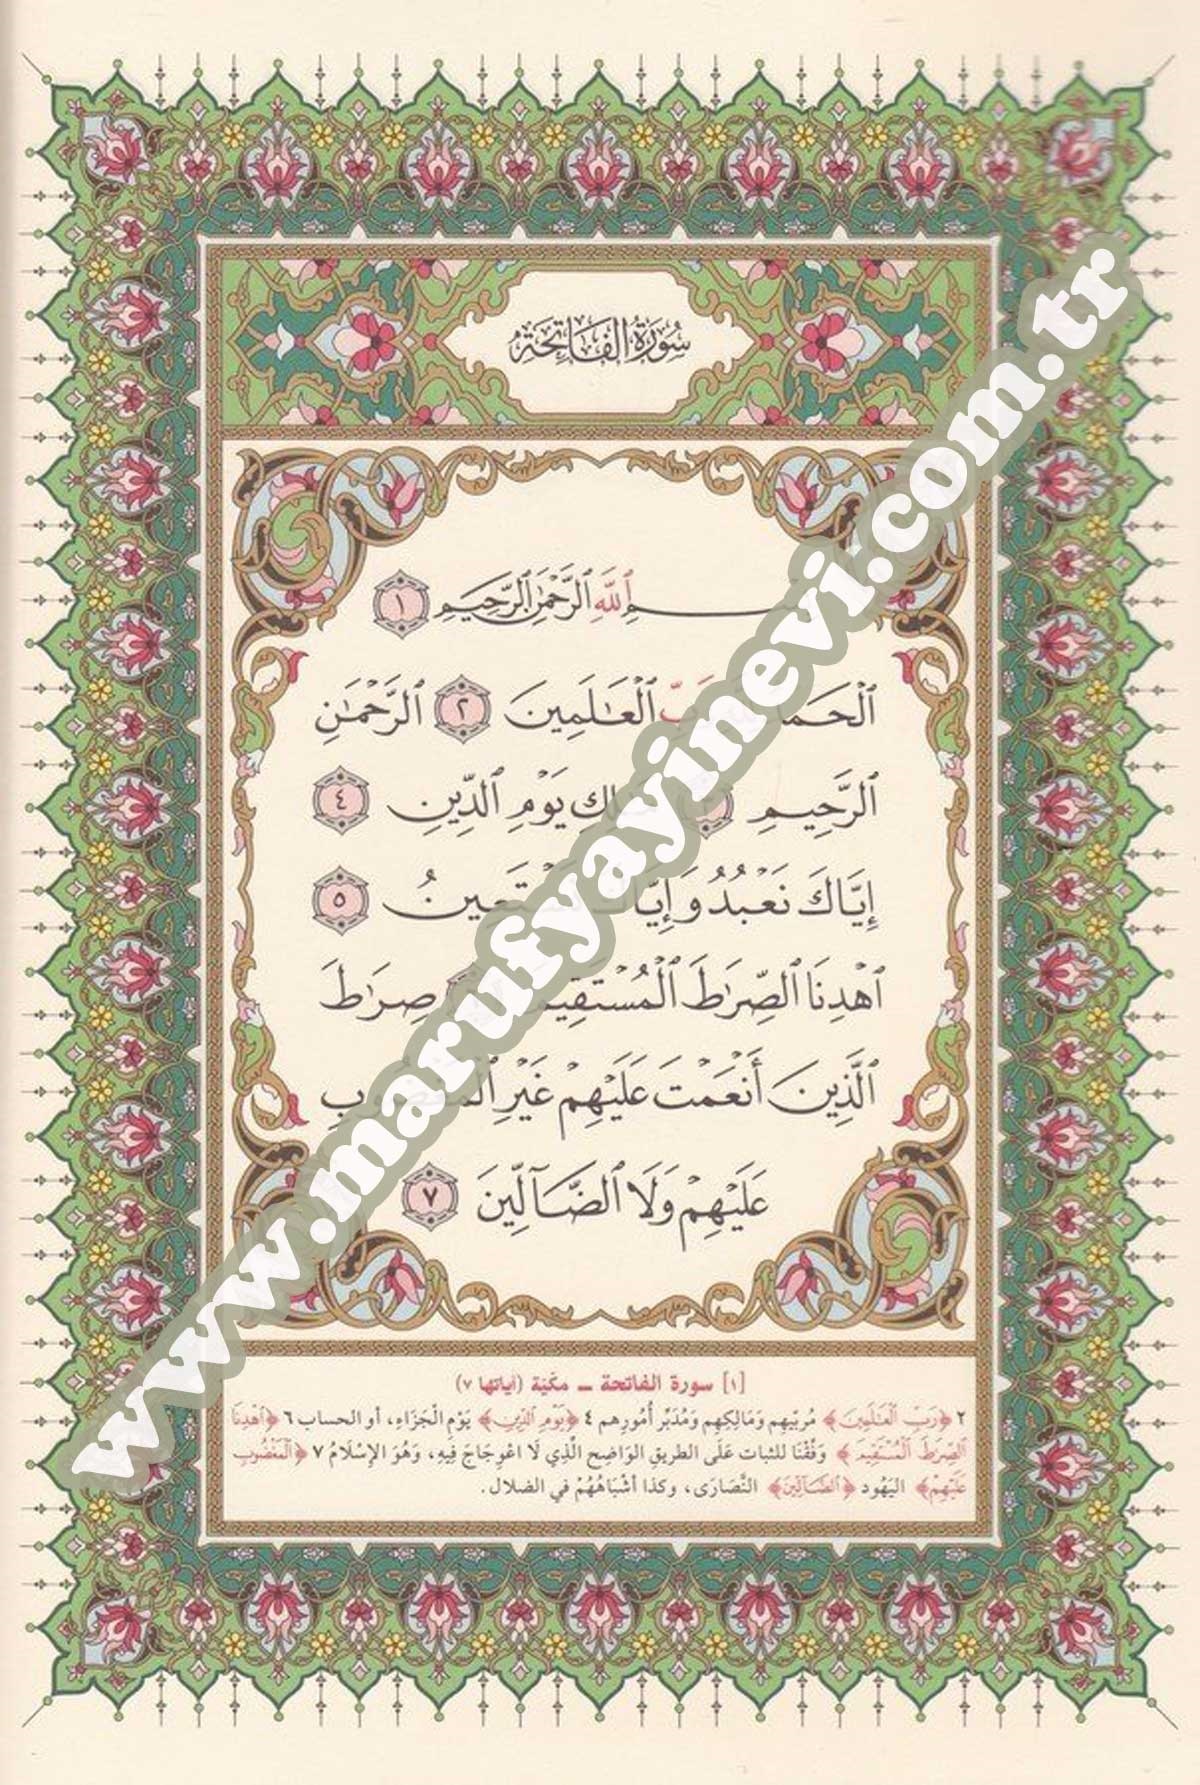 سُورَةُ الْفَاتِحَةِ
ٱللَّهِ ٱلرَّحْمَٰنِ ٱلرَّحِيمِ ١
ٱلْحَمْدُ رَبِّ ٱلْعَٰلَمِينَ ٢ ٱلرَّحْمَٰنِ
ٱلرَّحِيمِ ٣ مَٰلِكِ يَوْمِ ٱلدِّينِ ٤
إِيَّاكَ نَعْبُدُ وَإِيَّاكَ نَسْتَعِينُ ٥
ٱهْدِنَا ٱلصِّرَٰطَ ٱلْمُسْتَقِيمَ صِرَٰطَ
ٱلَّذِينَ أَنْعَمْتَ عَلَيْهِمْ غَيْرِ ٱلْمَغْضُوبِ
عَلَيْهِمْ وَلَا ٱلضَّآلِّينَ ٧
[١] سورة الفاتحة ــ مكيّة (آياتها ٧)
٢ ﴿رَبِّ ٱلْعَٰلَمِينَ﴾ مُرَبِّيهِم وَمَالِكِهِم وَمُدَبِّرِ أُمُورِهم ٤ ﴿يَوْمِ ٱلدِّينِ﴾ يَوْمِ الْجَزَاءِ، أو الحساب ٦ ﴿ٱهْدِنَا
ٱلصِّرَٰطَ ٱلْمُسْتَقِيمَ﴾ وَفِّقْنَا للثبات عَلَى الطريقِ الوَاضِحِ الَّذِي لَا اعْوِجَاجَ فِيهِ، وَهُوَ الإِسْلَامُ ٧ ﴿ٱلْمَغْضُوبِ
عَلَيْهِمْ﴾ اليَهُود ﴿ٱلضَّآلِّينَ﴾ النَّصَارَى، وكذا أشْبَاهُهُمْ في الضلال.
www.marufyayinevi.com.tr